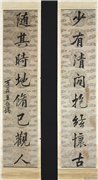 少有清閒抱經懷古
隨其時地脩己觀人